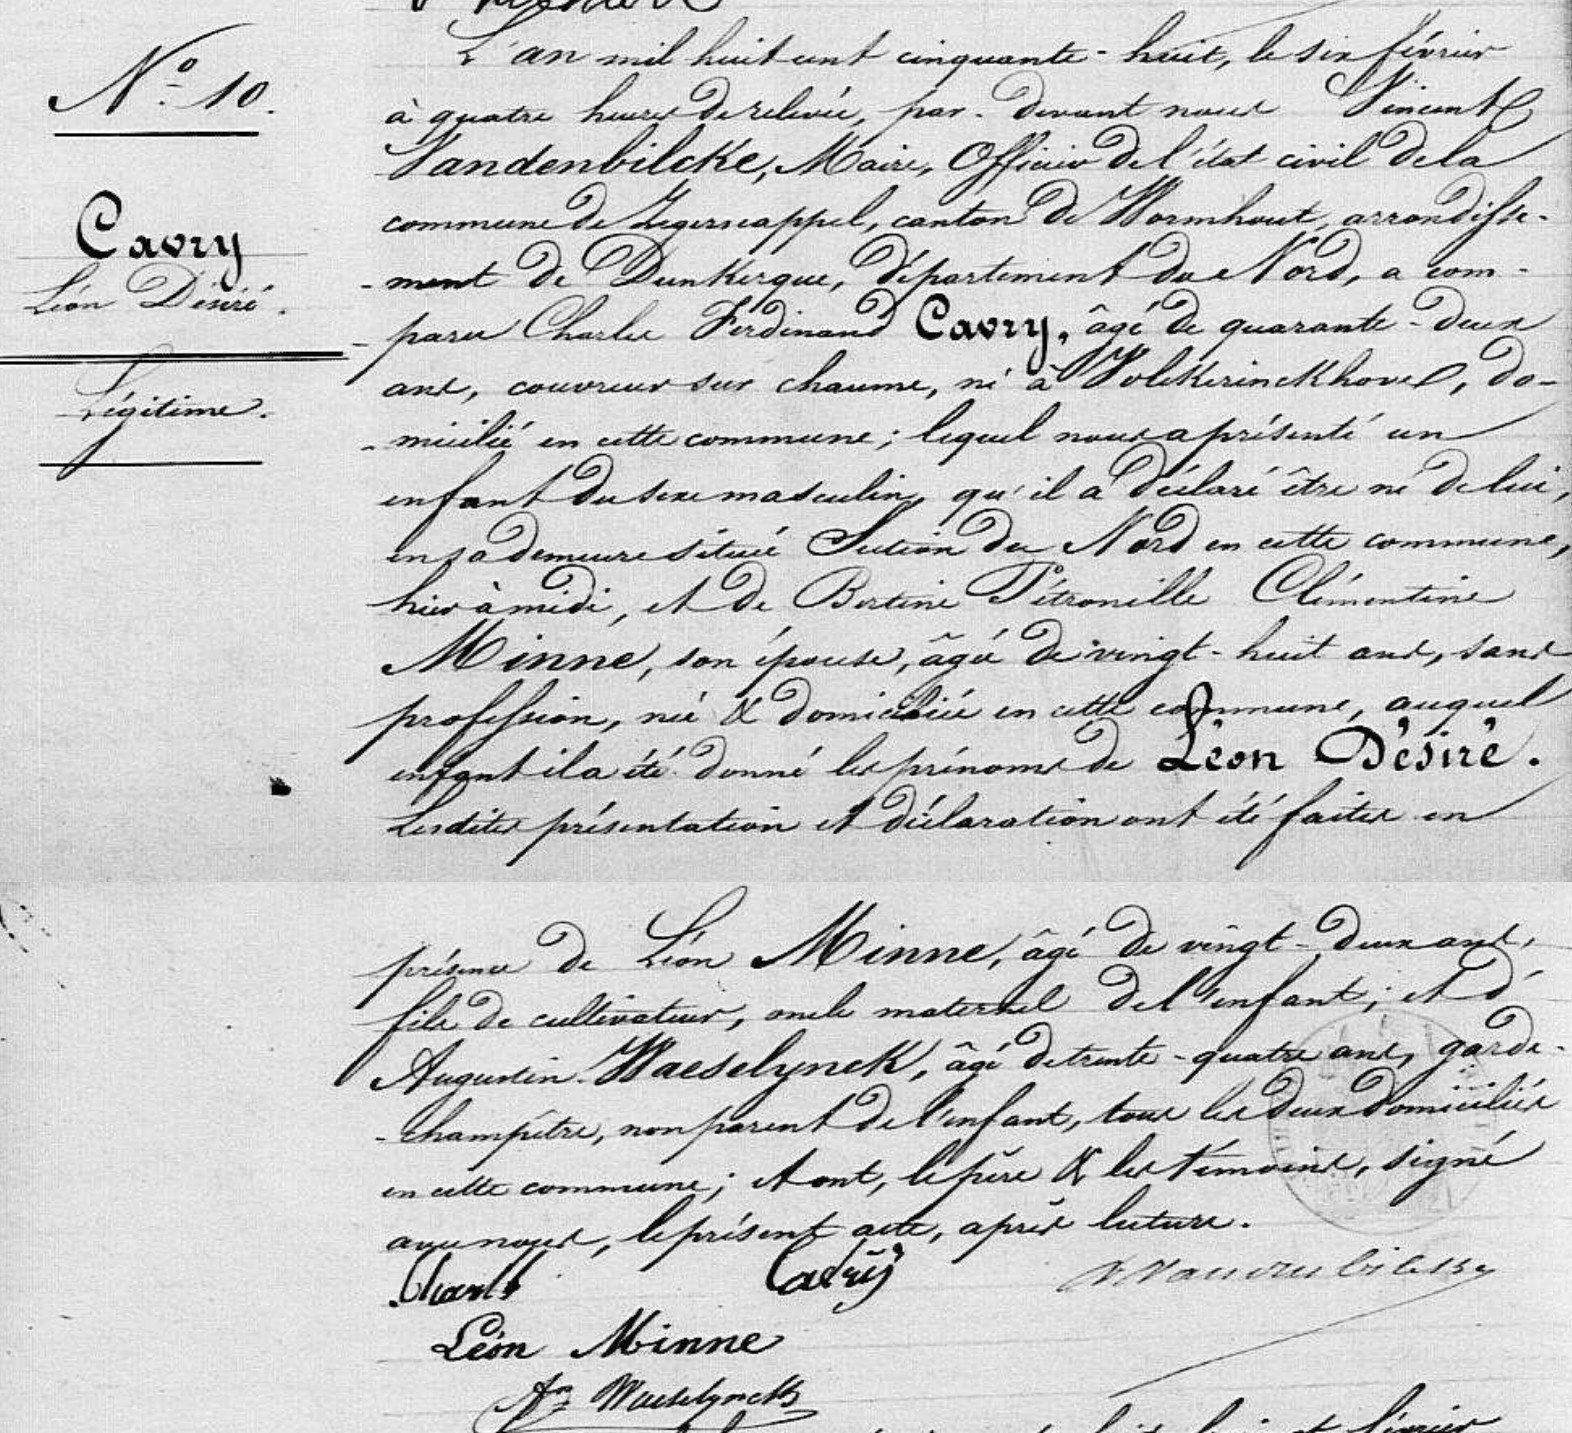 N.° 10.
Cavry
Léon Désiré.
Légitime.
L'an mil huit cent cinquante-huit, le six février
à quatre heures de relevée, par-devant nous Vincent
Vandenbilcke, Maire, Officier de l'état civil de la
commune de Zegerscappel, canton de Wormhout, arrondisse-
-ment de Dunkerque, département du Nord, a com-
-paru Charles Ferdinand Cavry, âgé de quarante-deux
ans, couvreur sur chaume, né à Volckerinckhove, do-
-micilié en cette commune; lequel nous a présenté un
enfant du sexe masculin, qu'il a déclaré être né de lui,
en sa demeure située Section du Nord en cette commune,
hier à midi, et de Bertine Pétronille Clémentine
Minne, son épouse, âgée de vingt-huit ans, sans
profession, née & domiciliée en cette commune, auquel
enfant il a été donné les prénoms de Léon Désiré.
Lesdites présentation et déclaration ont été faites en
présence de Léon Minne, âgé de vingt-deux ans,
fils de cultivateur, oncle maternel de l'enfant; et d'
Augustin Waeselynck, âgé de trente-quatre ans, garde-
-champêtre, non parent de l'enfant, tous les deux domiciliés
en cette commune; et ont, le père & les témoins, signé
avec nous, le présent acte, après lecture.
Charles Cavrÿ
Léon Minne
An Waeselynck
février